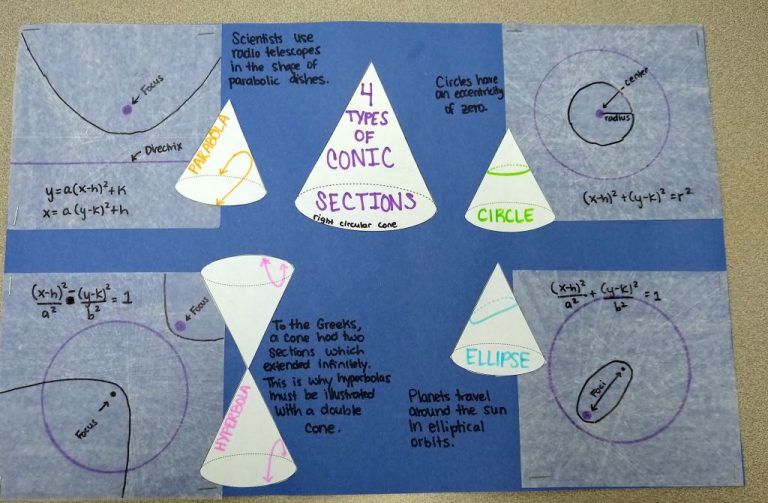 Scientists use
radio telescopes
in the shape of
parabolic dishes.
Focus
Directrix
y=a(x-h)²+k
x=a(y-k)²+h
PARABOLA
4
TYPES
OF
CONIC
SECTIONS
right circular cone
Circles have
an eccentricity
of zero.
CIRCLE
center
radius
(x-h)²+(y-k)²=r²
(x-h)²/a² - (y-k)²/b² = 1
Focus
Focus
HYPERBOLA
To the Greeks,
a cone had two
sections which
extended infinitely.
This is why hyperbolas
must be illustrated
with a double
cone.
ELLIPSE
Planets travel
around the sun
in elliptical
orbits.
(x-h)²/a² + (y-k)²/b² = 1
Foci